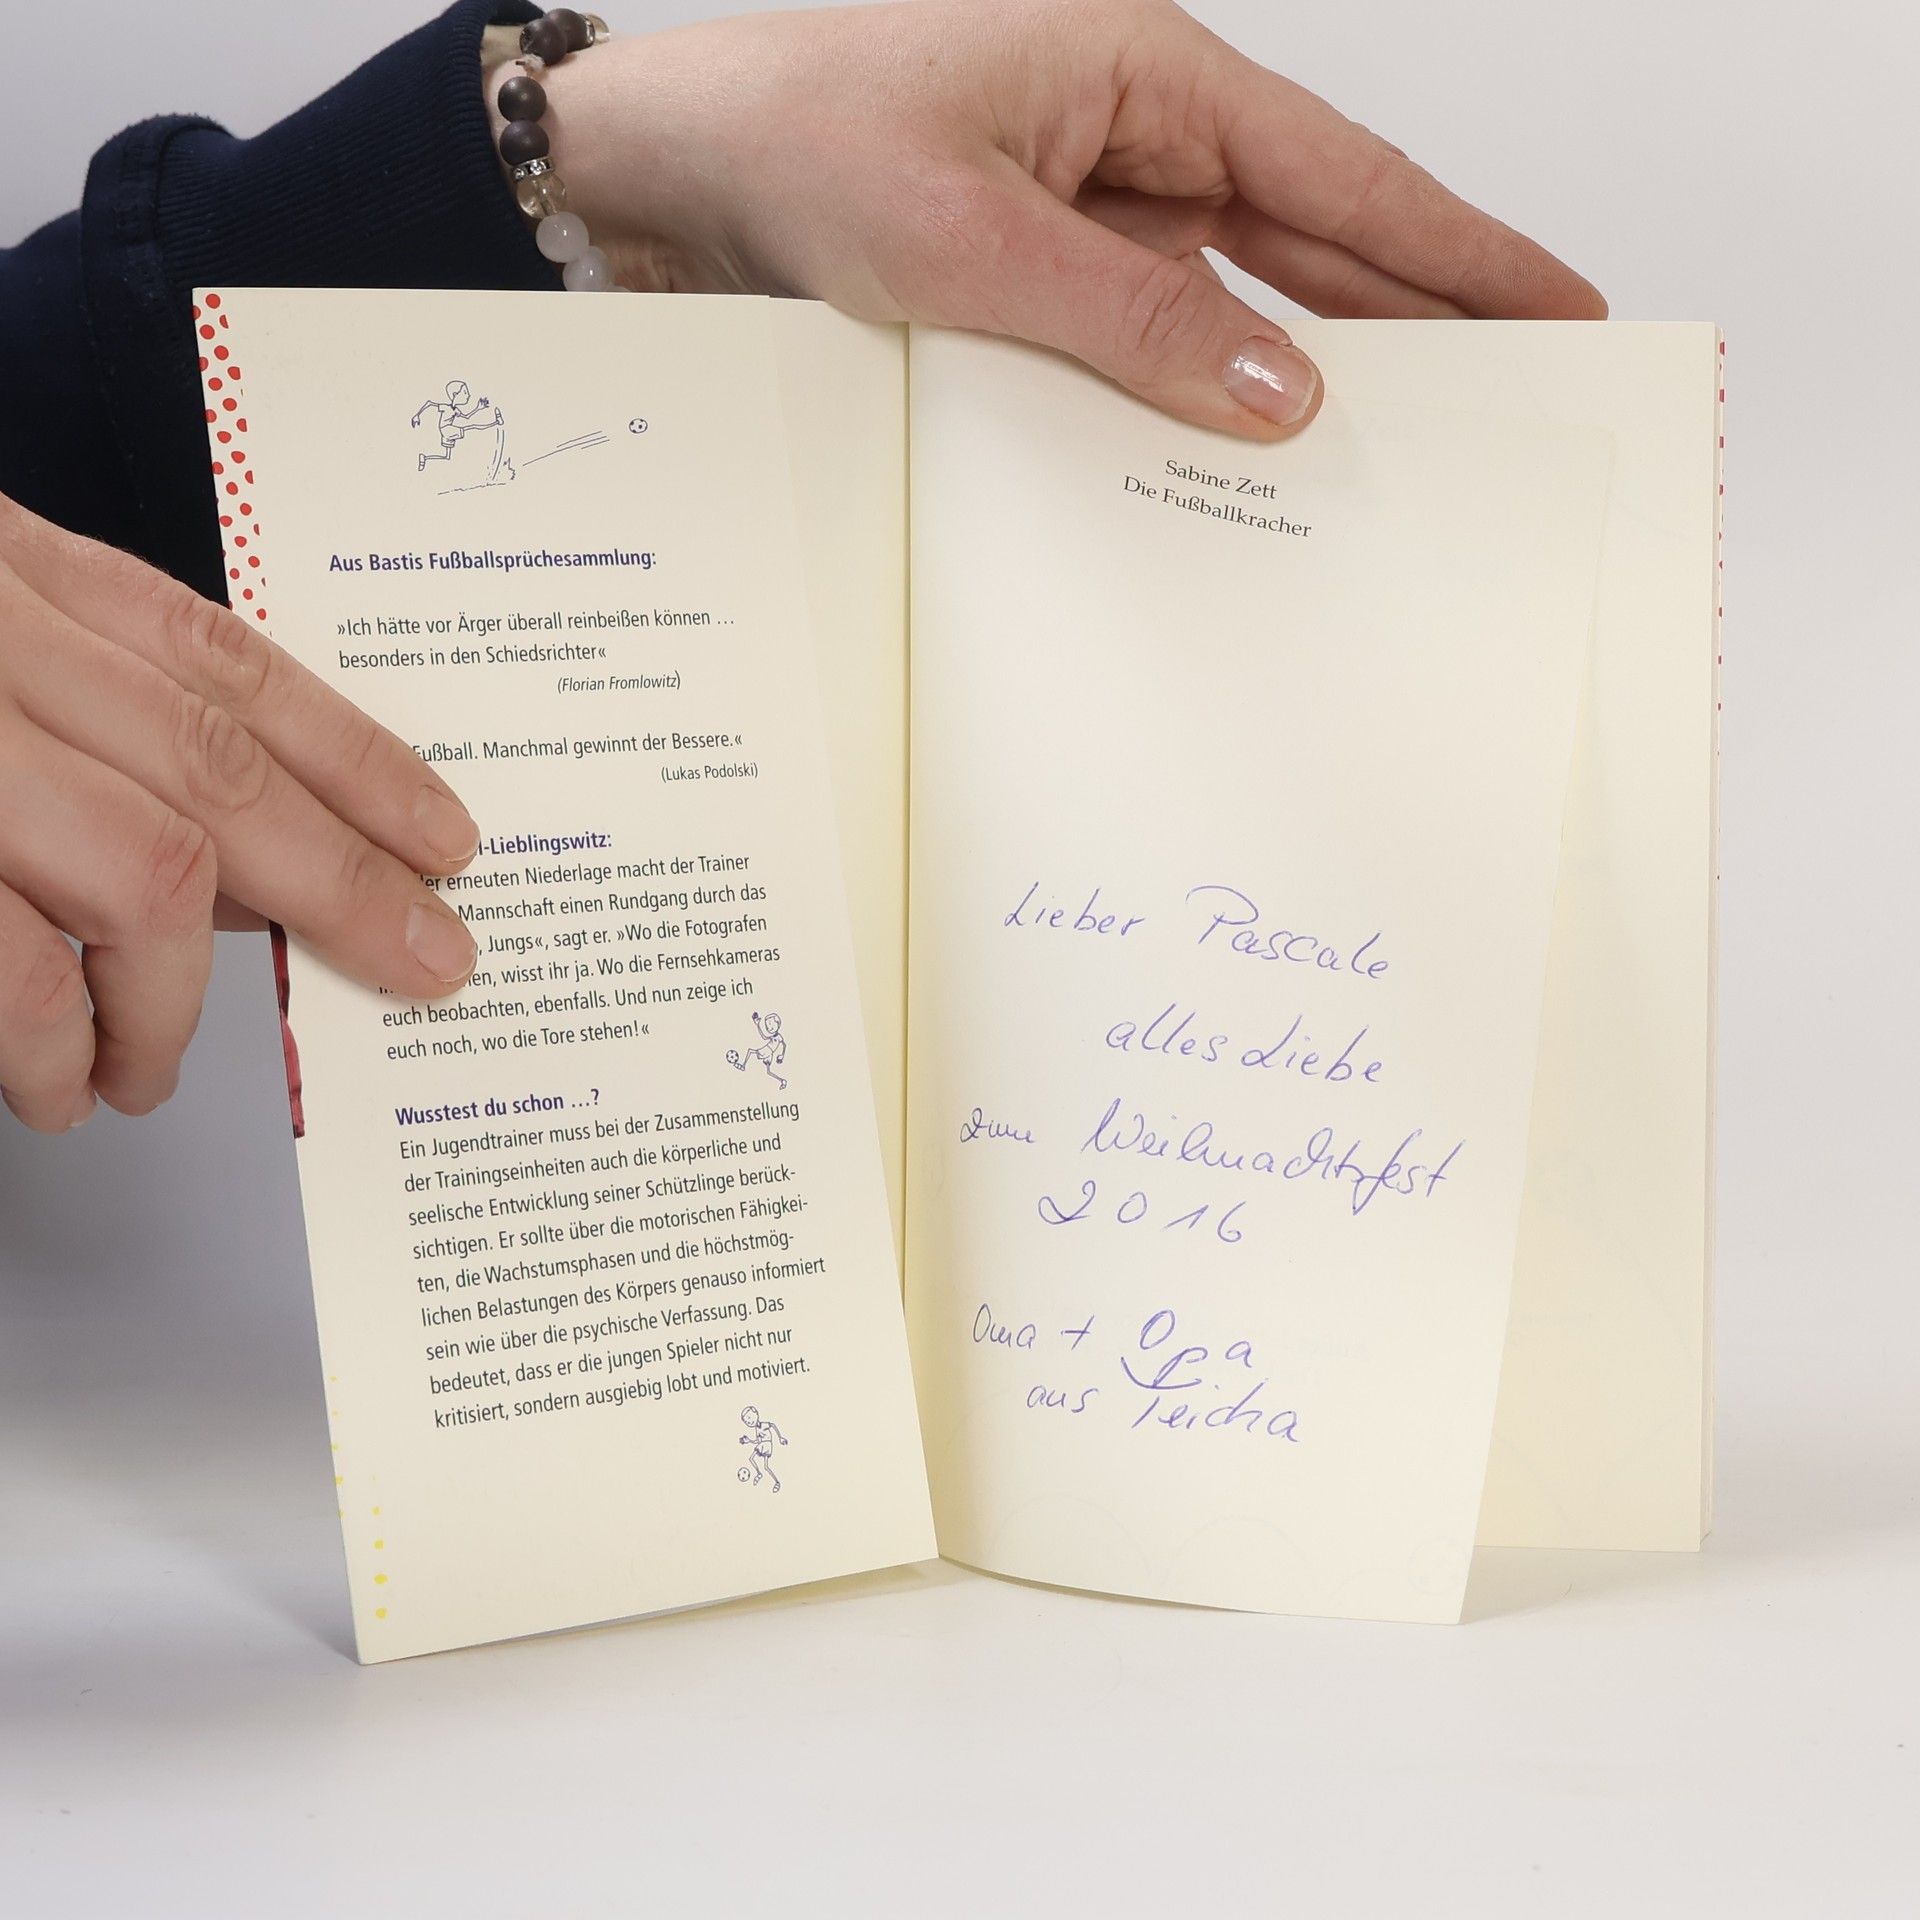 Aus Bastis Fußballsprüchesammlung:
»Ich hätte vor Ärger überall reinbeißen können …
besonders in den Schiedsrichter«
(Florian Fromlowitz)
Fußball. Manchmal gewinnt der Bessere.«
(Lukas Podolski)
-Lieblingswitz:
erneuten Niederlage macht der Trainer
Mannschaft einen Rundgang durch das
, Jungs«, sagt er. »Wo die Fotografen
wisst ihr ja. Wo die Fernsehkameras
euch beobachten, ebenfalls. Und nun zeige ich
euch noch, wo die Tore stehen!«
Wusstest du schon …?
Ein Jugendtrainer muss bei der Zusammenstellung
der Trainingseinheiten auch die körperliche und
seelische Entwicklung seiner Schützlinge berück-
sichtigen. Er sollte über die motorischen Fähigkei-
ten, die Wachstumsphasen und die höchstmög-
lichen Belastungen des Körpers genauso informiert
sein wie über die psychische Verfassung. Das
bedeutet, dass er die jungen Spieler nicht nur
kritisiert, sondern ausgiebig lobt und motiviert.
Sabine Zett
Die Fußballkracher
Lieber Pascale
alles Liebe
zum Weihnachtsfest
2016
Oma + Opa
aus Teicha